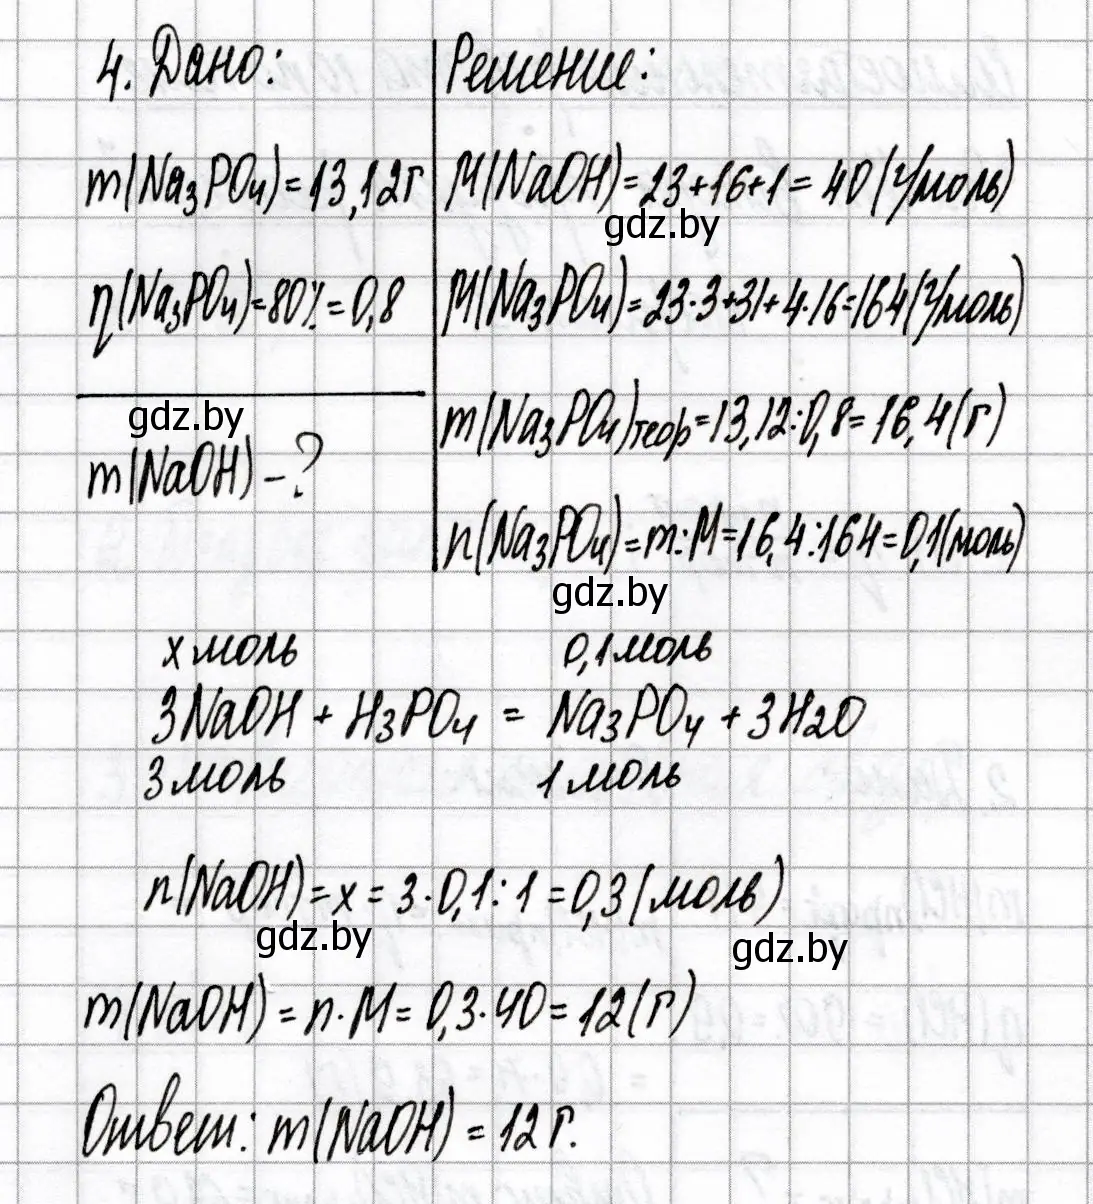 4. Дано:
m(Na₃PO₄)=13,12г
η(Na₃PO₄)=80%=0,8
gdz.by
m(NaOH)-?
Решение:
M(NaOH)=23+16+1=40(г/моль)
gdz.by
M(Na₃PO₄)=23·3+31+4·16=164(г/моль)
m(Na₃PO₄)теор=13,12:0,8=16,4(г)
n(Na₃PO₄)=m:M=16,4:164=0,1(моль)
gdz.by
x моль 0,1 моль
3NaOH + H₃PO₄ = Na₃PO₄ + 3H₂O
3 моль 1 моль
n(NaOH)=x=3·0,1:1=0,3(моль)
gdz.by gdz.by
m(NaOH)=n·M=0,3·40=12(г)
Ответ: m(NaOH)=12г.